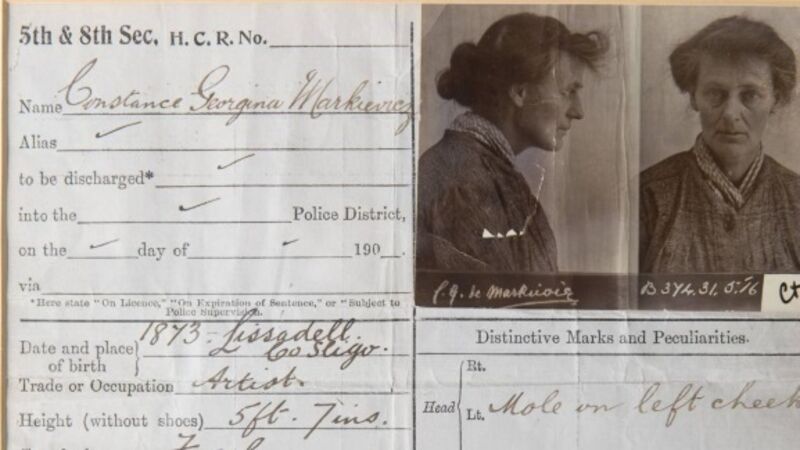 5th & 8th Sec. H. C. R. No.
Name Constance Georgina Markievicz
Alias
to be discharged*
into the Police District,
on the day of 190 .
via
*Here state "On Licence," "On Expiration of Sentence," or "Subject to
Police Supervision.
Date and place of birth } 1873 - Lissadell.
Co Sligo.
Trade or Occupation Artist.
Height (without shoes) 5ft. 7ins.
C. G. de Markievicz
B 374.31.5.16
Distinctive Marks and Peculiarities.
Head { Rt.
Lt. Mole on left cheek